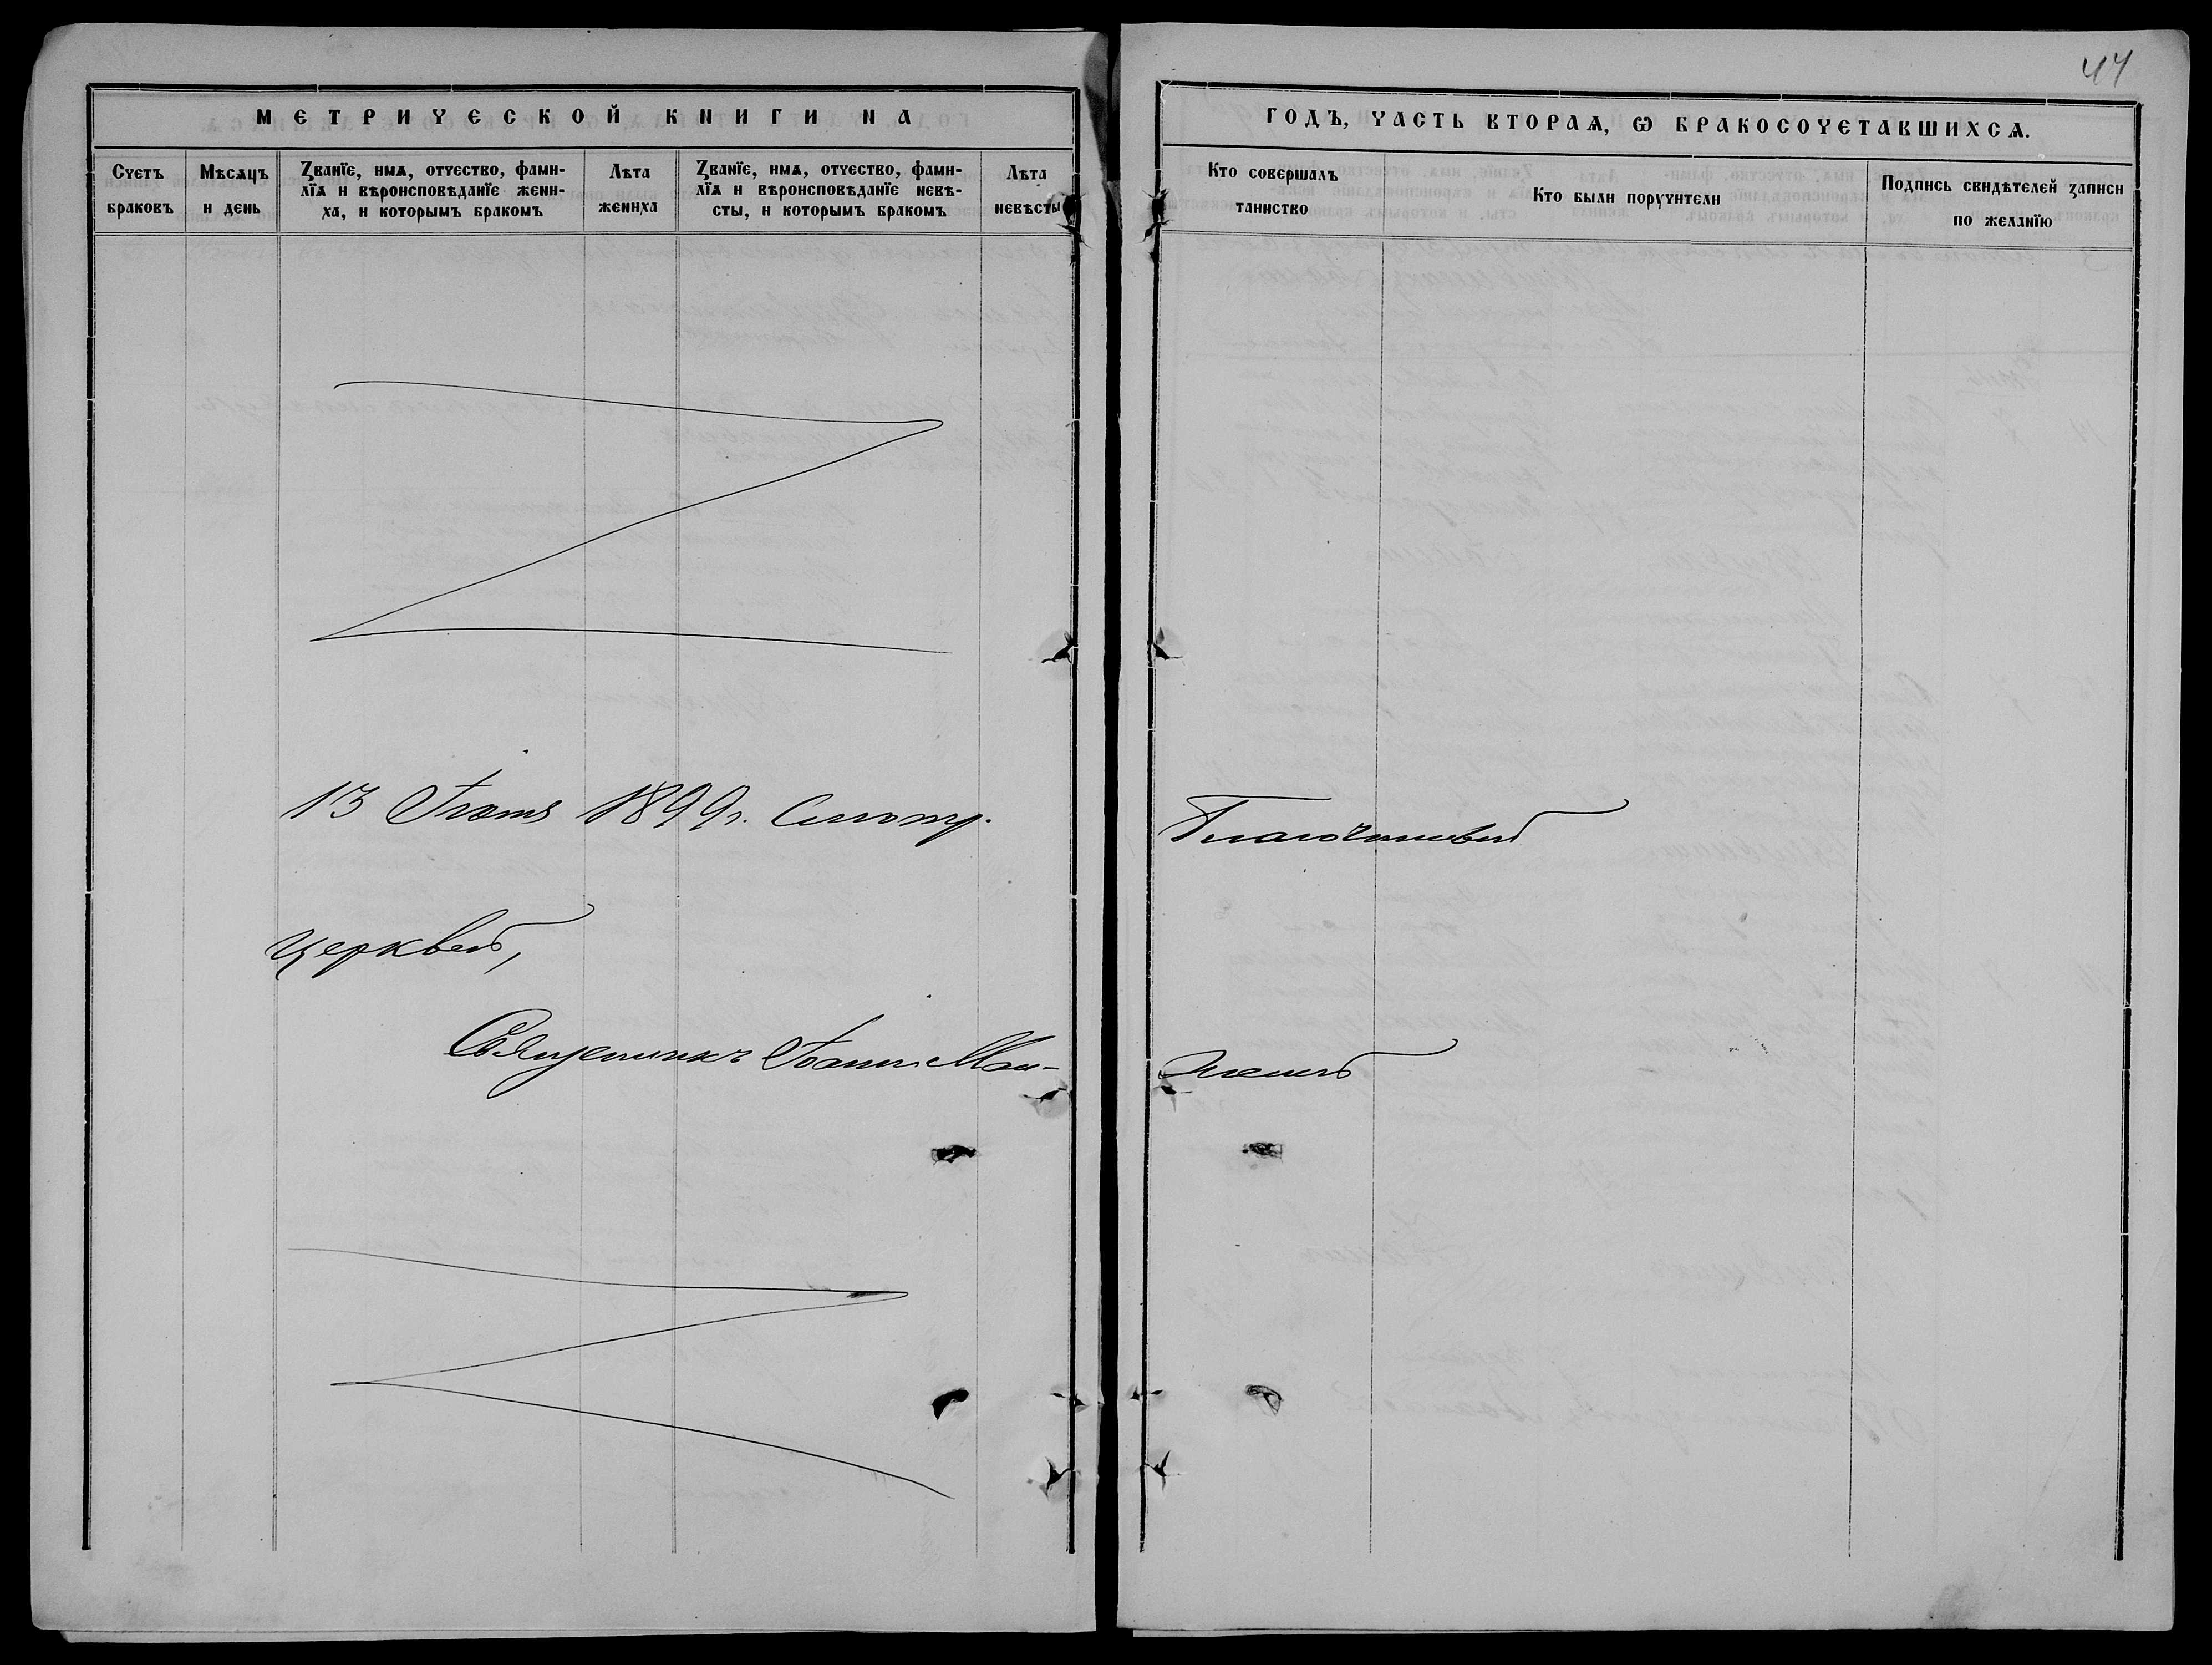 44
МЕТРИЧЕСКОЙ КНИГИ НА
ГОДЪ, ЧАСТЬ ВТОРАѦ, Ѡ БРАКОСОЧЕТАВШИХСѦ.
Счетъ браковъ
Мѣсѧцъ и день
Званїе, имѧ, отчество, фами-
лїѧ и вѣроисповѣданїе жени-
ха, и которымъ бракомъ
Лѣта жениха
Званїе, имѧ, отчество, фами-
лїѧ и вѣроисповѣданїе невѣ-
сты, и которымъ бракомъ
Лѣта невѣсты
Кто совершалъ
таинство
Кто были поручители
Подпись свидѣтелей записи
по желанїю
13 Іюня 1899 г. Смотр. Благочинный
церквей,
Священникъ Іоаннъ